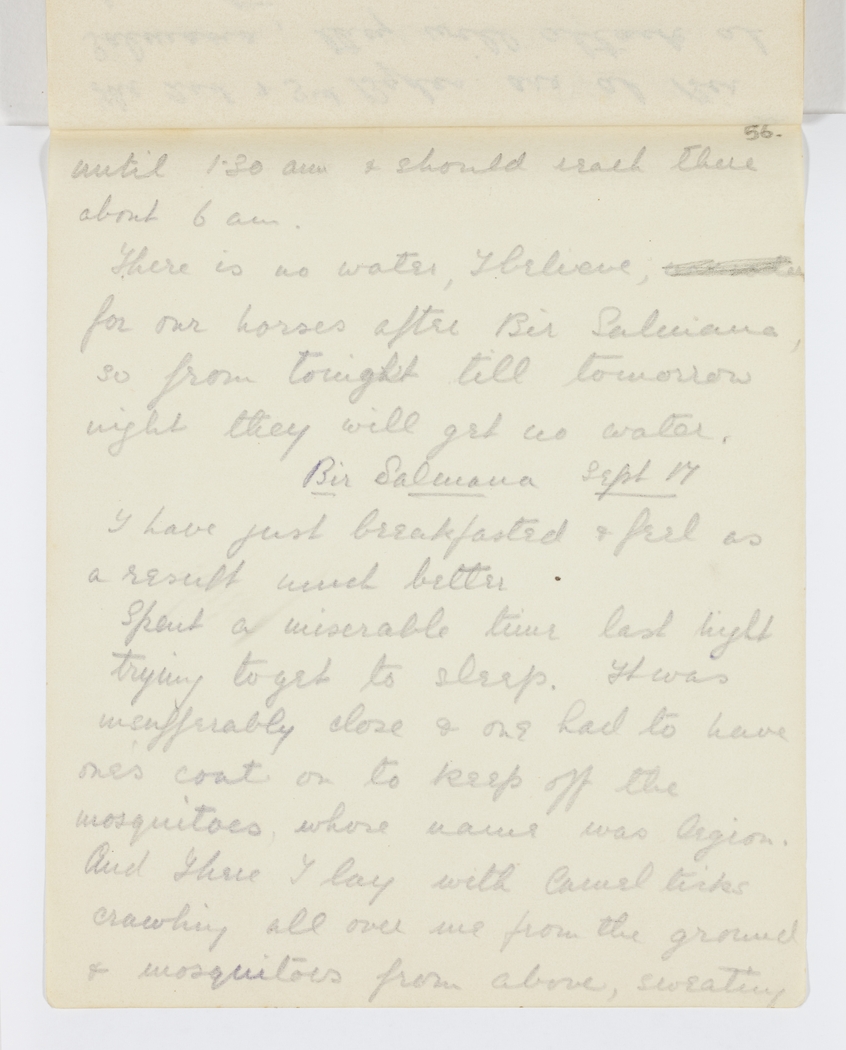 56.
until 1.30 am & should reach there
about 6 am.
There is no water, I believe,
for our horses after Bir Salmana,
so from tonight till tomorrow
night they will get no water.
Bir Salmana Sept 17
I have just breakfasted & feel as
a result much better
Spent a miserable time last night
trying to get to sleep. It was
insufferably close & one had to have
one's coat on to keep off the
mosquitoes, whose name was legion.
And there I lay with camel ticks
crawling all over me from the ground
& mosquitoes from above, sweating